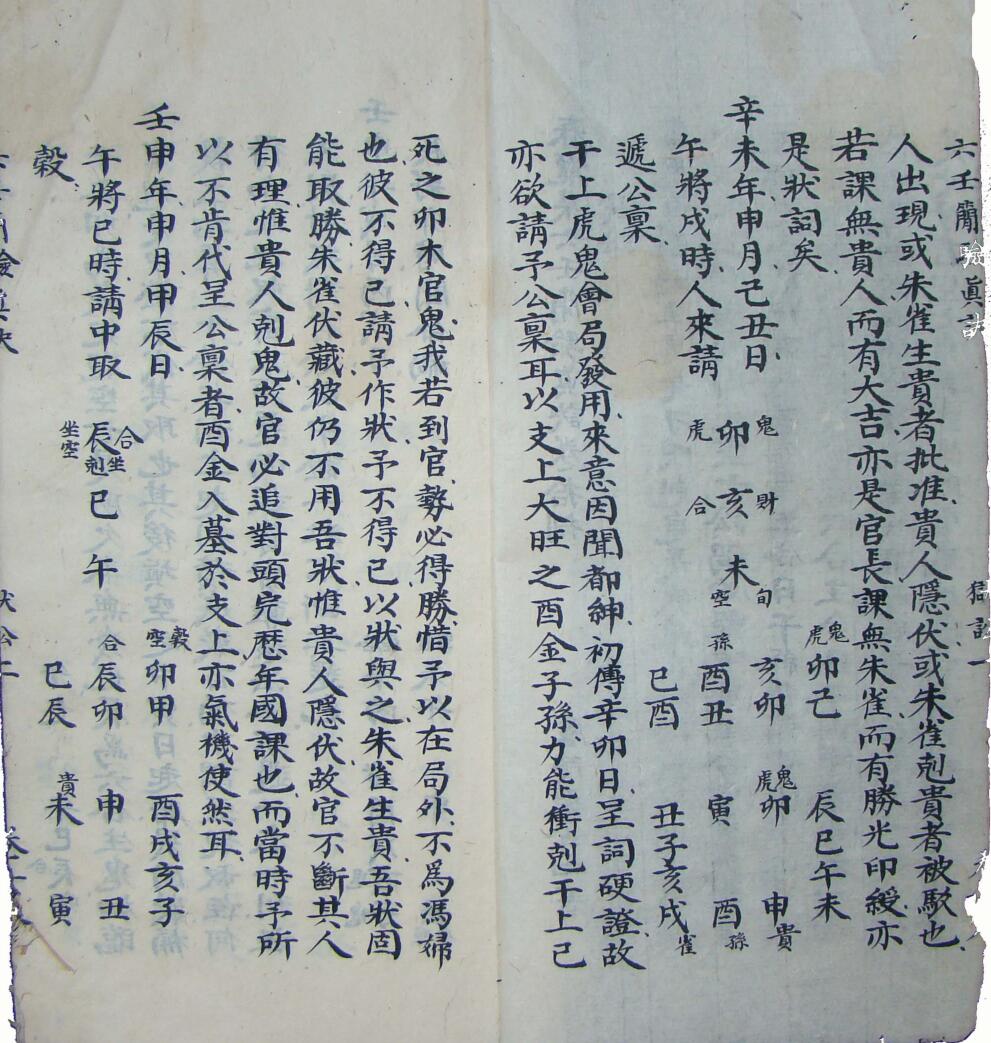 六壬簡驗眞訣
獄訟一
人出現或朱雀生貴者批准貴人隱伏或朱雀剋貴者被駁也
若課無貴人而有大吉亦是官長課無朱雀而有勝光印綬亦
是狀詞矣
辛未年申月己丑日
午將戌時人來請
遞公稟
鬼卯虎
財亥合
旬未空
鬼虎卯己
亥卯
孫酉丑
巳酉
辰巳午未
鬼虎卯 申貴
寅 酉孫
丑子亥戌雀
干上虎鬼會局發用來意因聞都紳初傳辛卯日呈詞硬證故
亦欲請予公稟耳以支上大旺之酉金子孫力能衝剋干上已
死之卯木官鬼我若到官勢必得勝惜予以在局外不為馮婦
也彼不得已請予作狀予不得已以狀與之朱雀生貴吾狀固
能取勝朱雀伏藏彼仍不用吾狀惟貴人隱伏故官不斷其人
有理惟貴人剋鬼故官必追對頭完歷年國課也而當時予所
以不肯代呈公稟者酉金入墓於支上亦氣機使然耳
壬申年申月甲辰日
午將巳時請中取
穀
合辰坐剋坐空
巳
午
穀空卯甲
合辰卯
巳辰
酉戌亥子
申 丑
貴未 寅